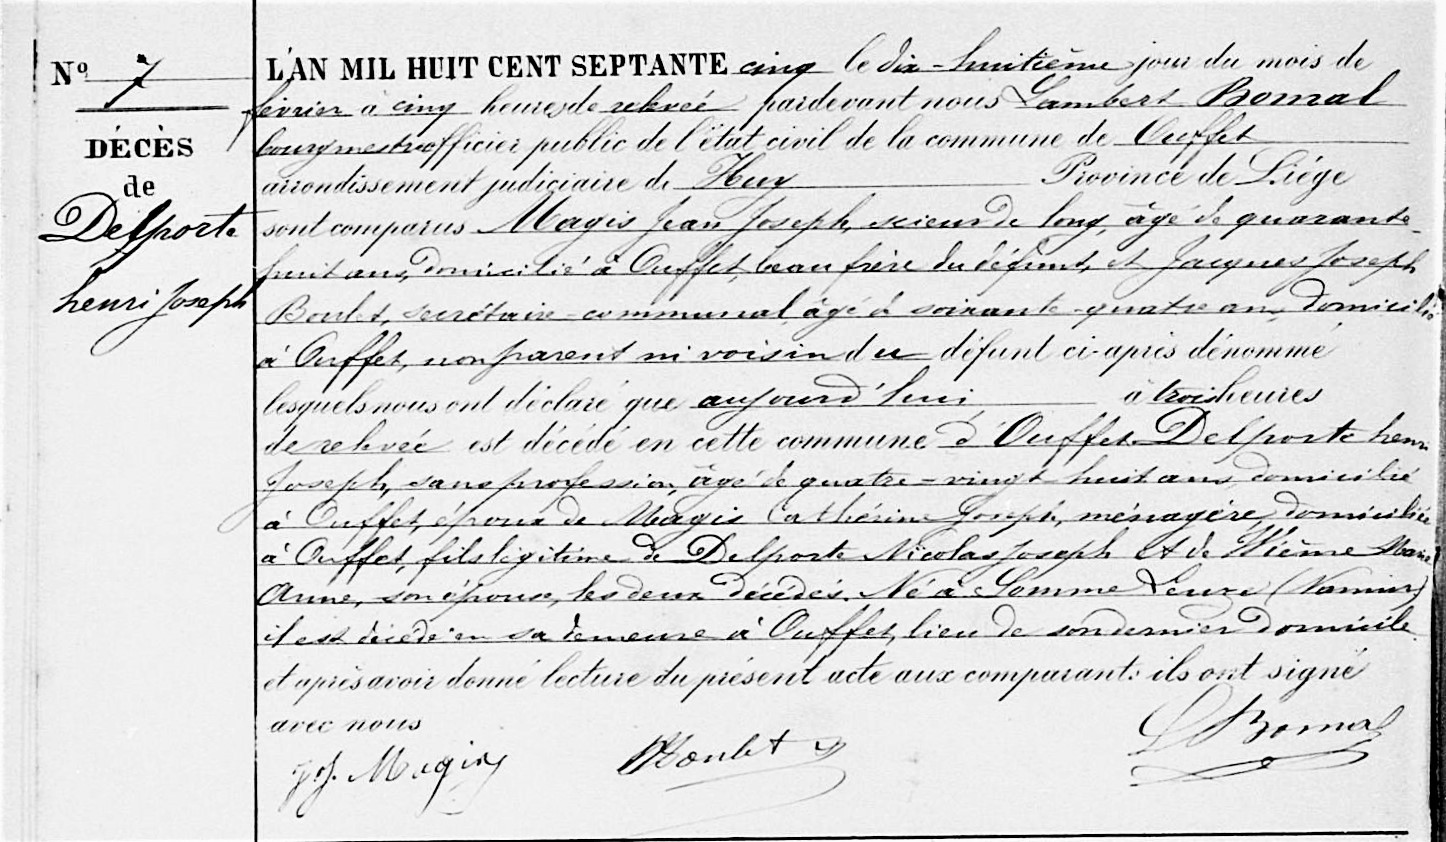 Nº 7
DÉCÈS
de
Delporte
henri Joseph
L'AN MIL HUIT CENT SEPTANTE cinq le dix-huitième jour du mois de
février à cinq heures de relevée pardevant nous Lambert Bomal
bourgmestre officier public de l'état civil de la commune de Ouffet
arrondissement judiciaire de Huy Province de Liége
sont comparus Magis Jean Joseph, scieur de long, âgé de quarante-
huit ans, domicilié à Ouffet, beau frère du défunt, et Jacques Joseph
Boulet, secrétaire-communal, âgé de soixante-quatre ans, domicilié
à Ouffet, non parent ni voisin du défunt ci-après dénommé
lesquels nous ont déclaré que aujourd'hui à trois heures
de relevée est décédé en cette commune d'Ouffet Delporte henri
Joseph, sans profession, âgé de quatre-vingt huit ans, domicilié
à Ouffet, époux de Magis Cathérine Joseph, ménagère, domiciliée
à Ouffet, fils légitime de Delporte Nicolas Joseph et de Wième Marie
Anne, son épouse, les deux décédés. Né à Somme Leuze (Namur)
il est décédé en sa demeure à Ouffet, lieu de son dernier domicile
et après avoir donné lecture du présent acte aux comparants ils ont signé
avec nous
J. J. Magis JBoulet L Bomal